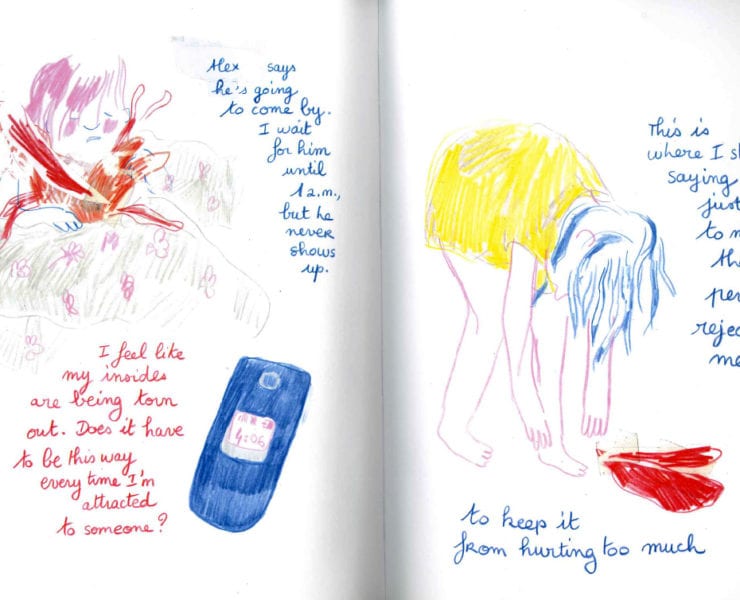 Alex says
he's going
to come by.
I wait
for him
until
1 a.m.,
but he
never
shows
up.
I feel like
my insides
are being torn
out. Does it have
to be this way
every time I'm
attracted
to someone?
4:06
This is
where I st
saying
just
to m
th
per
rejec
me
to keep it
from hurting too much